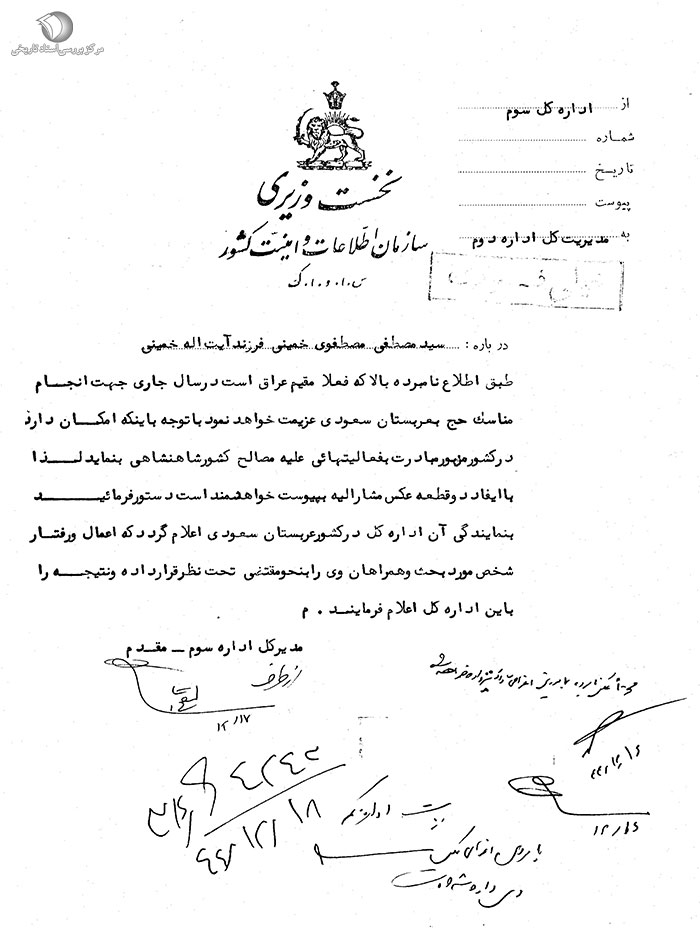 مرکز بررسی اسناد تاریخی
از اداره کل سوم
شماره
تاریخ
پیوست
به مدیریت کل اداره دوم
نخست وزیری
سازمان اطلاعات و امنیت کشور
س.ا.و.ا.ک
خیلی فوری
درباره : سید مصطفی مصطفوی خمینی فرزند آیت اله خمینی
طبق اطلاع نامبرده بالا که فعلا مقیم عراق است در سال جاری جهت انجام
مناسك حج بعربستان سعودی عزیمت خواهد نمود با توجه باینکه امکان دارد
در کشور مزبور مبادرت بفعالیتهائی علیه مصالح کشور شاهنشاهی بنماید لذا
با ایفاد دو قطعه عکس مشارالیه بپیوست خواهشمند است دستور فرمائید
بنمایندگی آن اداره کل در کشور عربستان سعودی اعلام گردد که اعمال و رفتار
شخص مورد بحث و همراهان وی را بنحو مقتضی تحت نظر قرار داده و نتیجه را
باین اداره کل اعلام فرمایند . م
مدیر کل اداره سوم - مقدم
از طرف
۱۲/۱۷
۱۲/۱۶
۴۲۴۳
۴۴/۱۲/۱۸